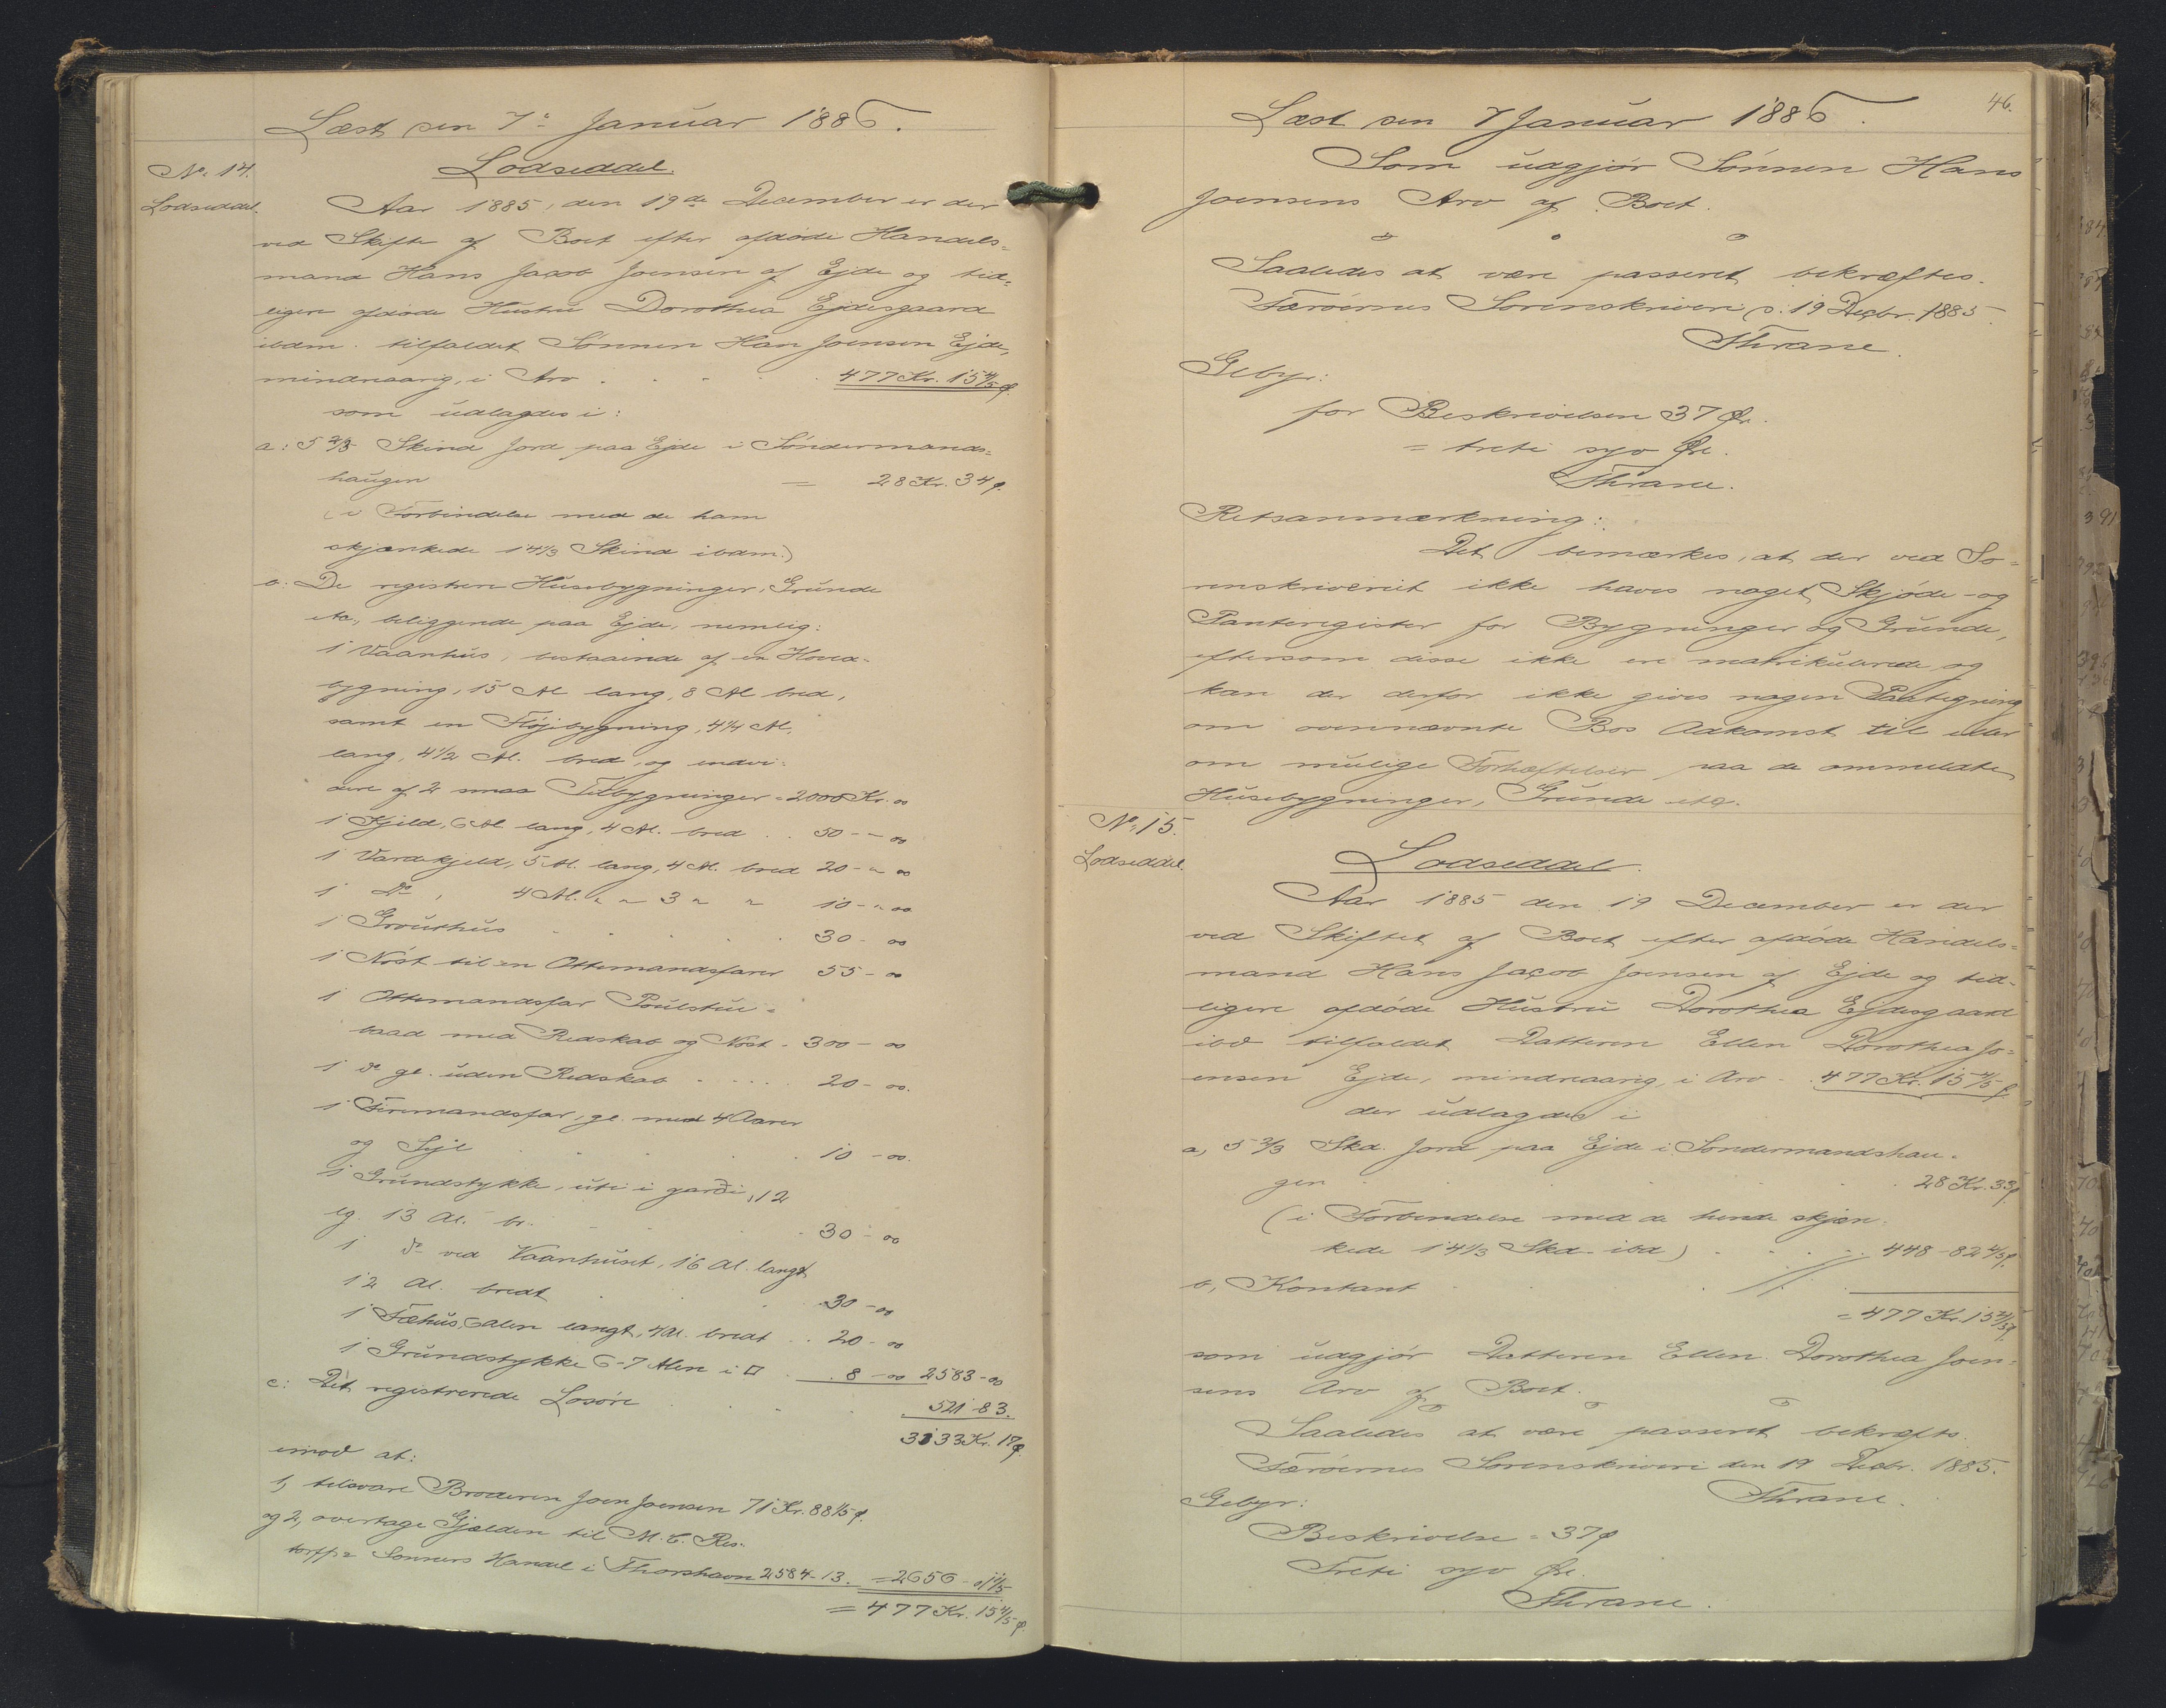 Læst den 7de Januar 1886.
No. 14.
Lodseddel.
Lodseddel.
Aar 1885, den 19de December er der
ved Skifte af Boet efter afdøde Handels=
mand Hans Jacob Joensen af Ejde og tid=
ligere afdøde Hustru Dorothea Ejdesgaard
ibdm. tilfaldet Sønnen Han Joensen Ejde,
mindreaarig, i Arv . . . . 477 Kr. 15 4/5 Ø.
som udlagdes i:
a: 5 2/3 Skind Jord paa Ejde i Søndermands=
haugen = 28 Kr. 34 ø.
(i Forbindelse med de ham
skjænkede 14 1/3 Skind ibdm.)
b: De registrere Husebygninger, Grunde
etc., beliggende paa Ejde, nemlig:
1 Vaanhus, bestaaende af en Hoved=
bygning, 15 Al lang, 8 Al bred,
samt en Fløjbygning, 4 1/4 Al.
lang, 4 1/2 Al. bred, og endvi=
dere af 2 smaa Tilbygninger = 2000 Kr. 00
1 Kjeld, 6 Al lang, 4 Al. bred . . 50 - - 00
1 Vardekjeld, 5 Al. lang, 4 Al. bred 20 - " 00
1 do , 4 Al. " " 3 " " 10 - " 00
1 Grouthus . . . . . 30 - 00
1 Nøst til en Ottemandsfarer 55 - 00
1 Ottemandsfar Poulstue=
baad med Redskab og Nøst . 300 - 00
1 do gl. uden Redskab . . . . 20 - 00.
1 Firemandsfar, gl. med 4 Aarer
og Sejl . . . . . 10 - 00.
1 Grundstykke, uti i garði, 12
lg. 13 Al. br. . . . . 30 - 00
1 do ved Vaanhuset, 16 Al. langt
12 Al. bredt . . . . 30 - 00
1 Fæhus, 6 Alen langt, 4 Al. bredt . . 20 - 00
1 Grundstykke 6-7 Alen i □ . . 8 - 00 2583 - 00
c: Det registrerede Løsøre . . . . 521 83.
3133 Kr. 17 ø.
imod at:
1, tilsvare Broderen Joen Joensen 71 Kr. 88 1/5 ø.
og 2, overtage Gjælden til M. C. Res=
torffs Sønners Handel i Thorshavn 2584 - 13. = 2656 - 01 1/5
= 477 Kr. 15 4/5 ø.
46.
Læst den 7 Januar 1886.
Som udgjør Sønnen Hans
Joensens Arv af Boet.
Saaledes at være passeret bekræftes.
Færøernes Sorenskriveri d. 19 Decbr. 1885.
Thrane.
Gebyr:
for Beskrivelsen 37 Ør.
= treti syv Øre.
Thrane.
Retsanmærkning:
Det bemærkes, at der ved So=
renskriveriet ikke haves noget Skjøde- og
Panteregister for Bygninger og Grunde,
eftersom disse ikke ere matrikulerede og
kan der derfor ikke gives nogen Paategning
om ovennævnte Bos Adkomst til eller
om mulige Forhæftelser paa de ommeldte
Husebygninger, Grunde etc.
No. 15.
Lodseddel.
Lodseddel.
Aar 1885 den 19 December er der
ved Skiftet af Boet efter afdøde Handels=
mand Hans Jacob Joensen af Ejde og tid=
ligere afdøde Hustru Dorothea Ejdesgaard
ibd tilfaldet Datteren Ellen Dorothea Jo=
ensen Ejde, mindreaarig, i Arv . . 477 Kr. 15 4/5 ø.
der udlagdes i
a, 5 2/3 Skd. Jord paa Ejde i Søndermandshau=
gen . . . . . 28 Kr. 33 ø.
(i Forbindelse med de hende skjæn=
kede 14 1/3 Skd. ibd) . . . . 448 - 82 4/5 ø.
b, Kontant . . . .
= 477 Kr. 15 4/5 ø.
som udgjør Datteren Ellen Dorothea Joen=
sens Arv af Boet.
Saaledes at være passeret bekræftes.
Færøernes Sorenskriveri den 19 Decbr. 1885.
Thrane.
Gebyr:
Beskrivelse = 37 ø
Treti syv Øre.
Thrane.